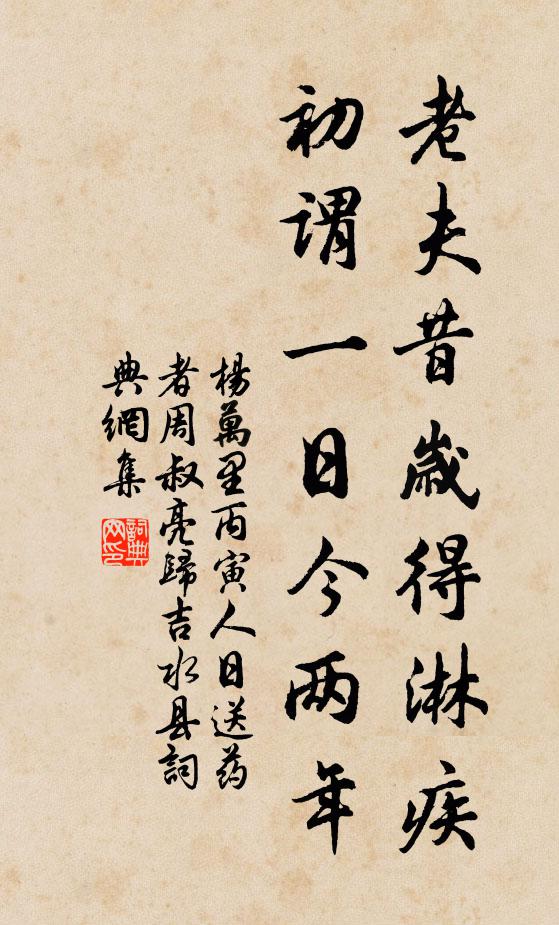 老夫昔歲得淋疾
初謂一日今兩年
楊萬里丙寅人日送药
者周叔亮歸吉水县詞
典網集
詞典
网印